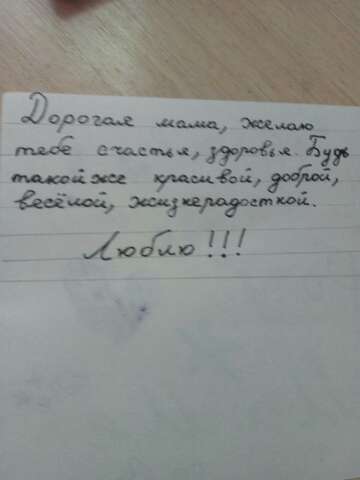 Дорогая мама, желаю
тебе счастья, здоровья. Будь
такой же красивой, доброй,
весёлой, жизнерадосткой.
Люблю!!!